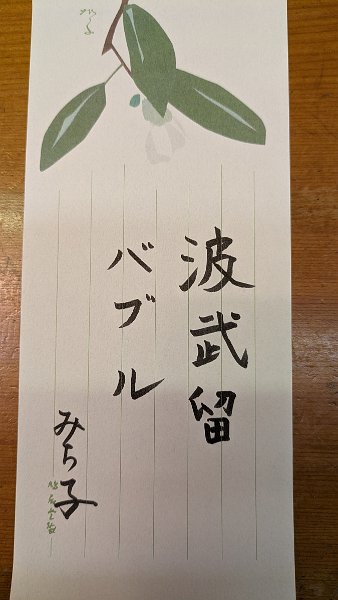 波武留
バブル
みち子